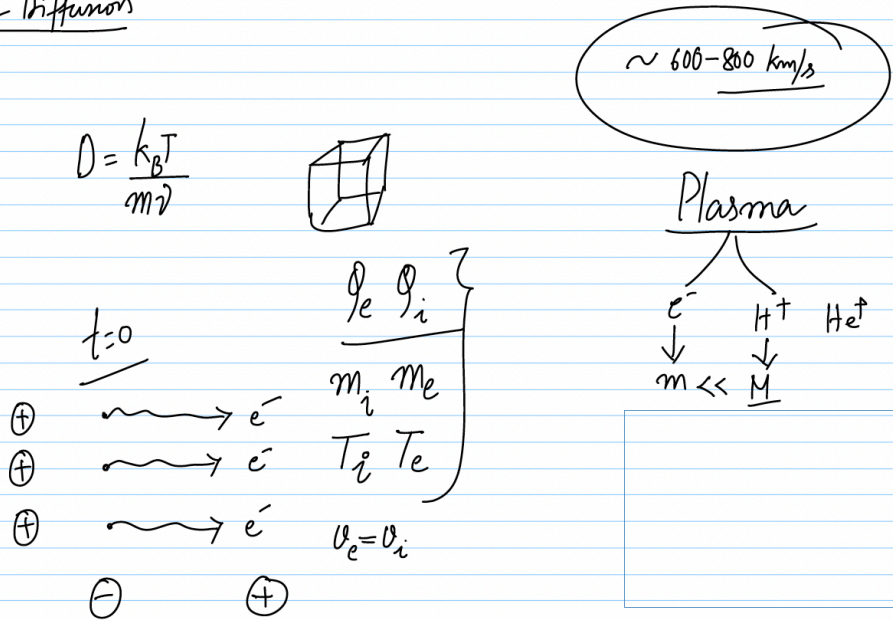 - Diffusion
~ 600-800 km/s
D = k_BT / mν
Plasma
e⁻ H⁺ He⁺
m << M
t=0
φ_e φ_i }
m_i m_e
T_i T_e
⊕ → e⁻
⊕ → e⁻
⊕ → e⁻
v_e = v_i
⊖ ⊕